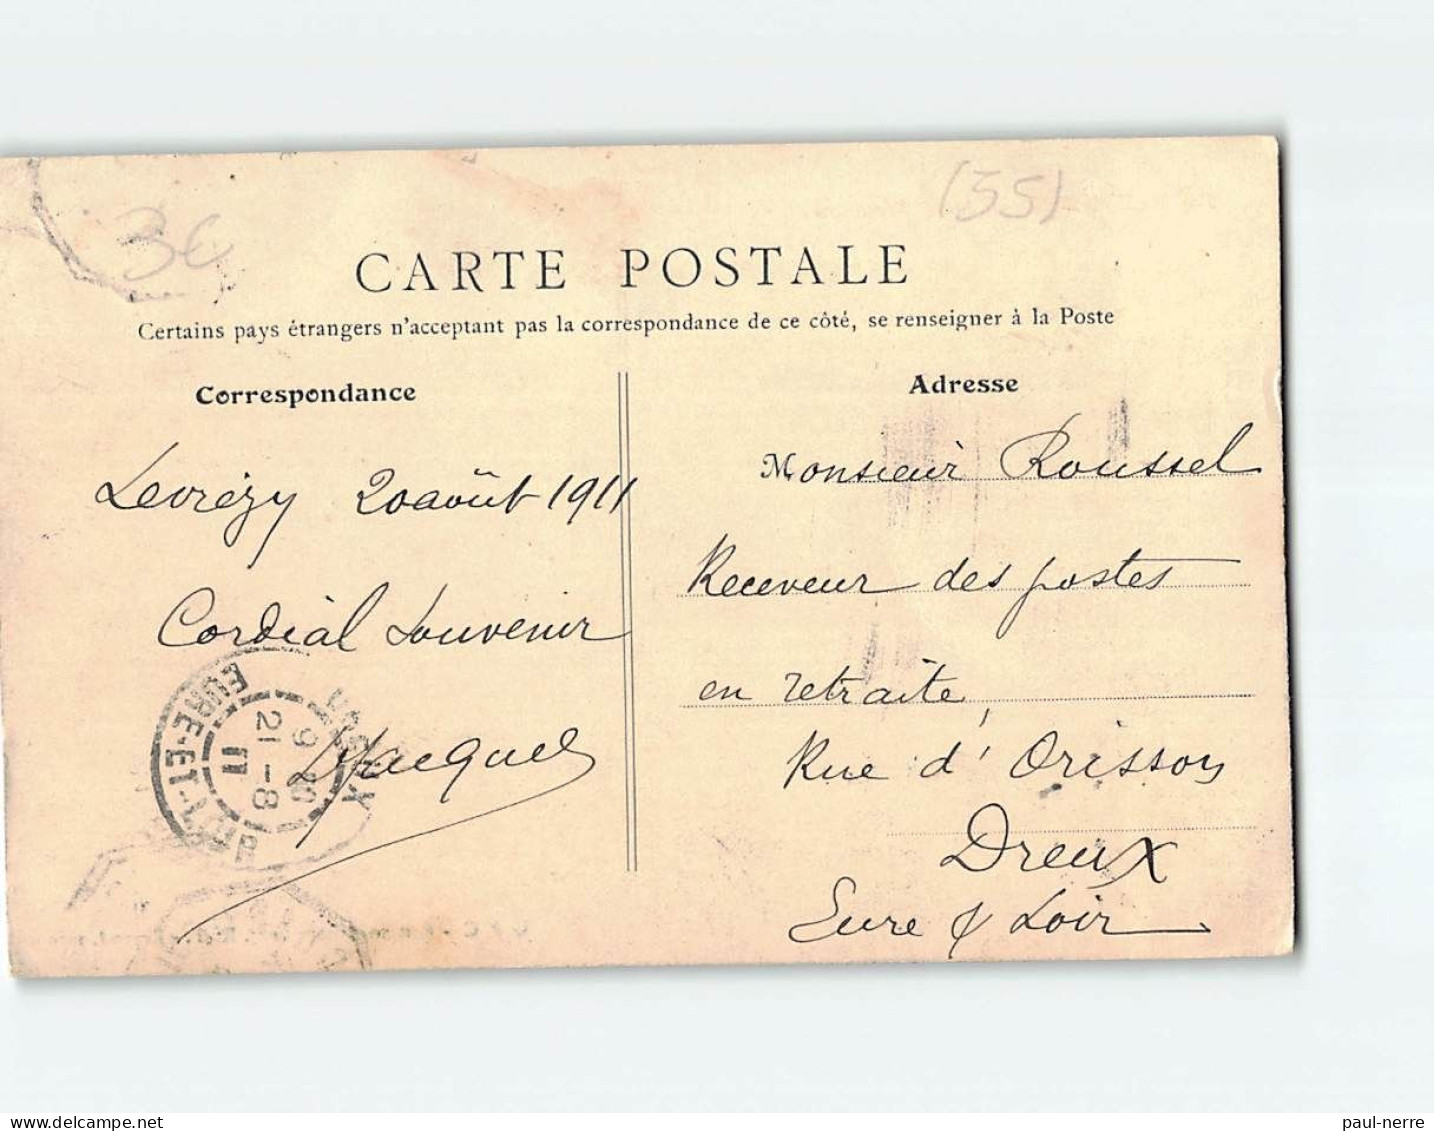 3€
(55)
CARTE POSTALE
Certains pays étrangers n'acceptant pas la correspondance de ce côté, se renseigner à la Poste
Correspondance
Levrézy 20 août 1911
Cordial Souvenir
Jacques
Adresse
Monsieur Roussel
Receveur des postes
en retraite,
Rue d'Orisson
Dreux
Eure & Loir
DREUX
9 20
21 - 8
11
EURE-ET-LOIR
paul-nerre